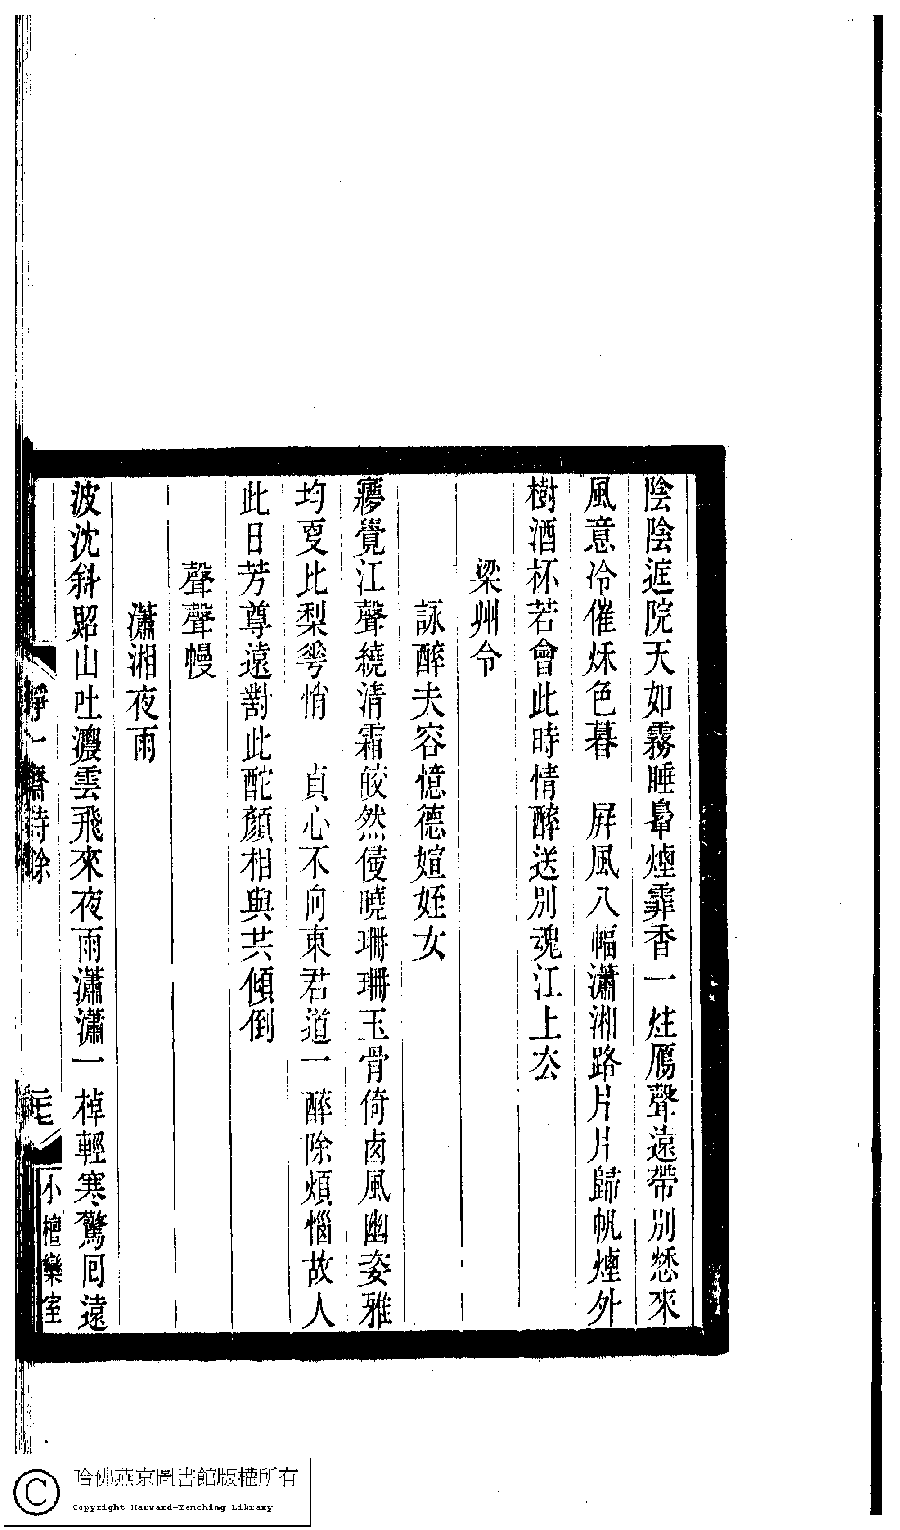 陰陰庭院天如霧睡鼻煙霏香一炷鴈聲遠帶別愁來
風意冷催秌色暮　屛風八幅瀟湘路片片歸帆煙外
樹酒杯若會此時情醉送別魂江上厺
梁州令
詠醉夫容憶德媗姪女
㝱覺江聲繞淸霜皎然侵曉珊珊玉骨倚鹵風幽姿雅
均𡕨比梨雩悄　貞心不向東君道一醉除煩惱故人
此日芳尊遠對此酡顏相與共傾倒
聲聲幔
瀟湘夜雨
波沈斜照山吐濃雲飛來夜雨瀟瀟一棹輕寒驚回遠
靜一齋詩餘
二七
小檀欒室
哈佛燕京圖書館版權所有
Copyright Harvard-Yenching Library